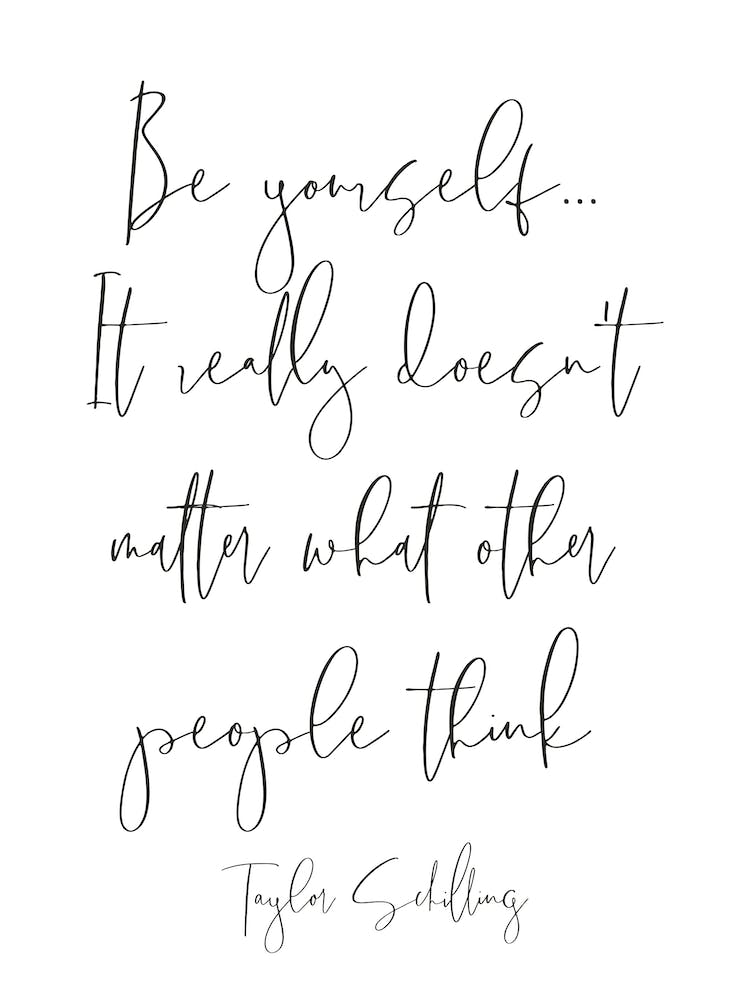 Be yourself...
It really doesn't
matter what other
people think
Taylor Schilling